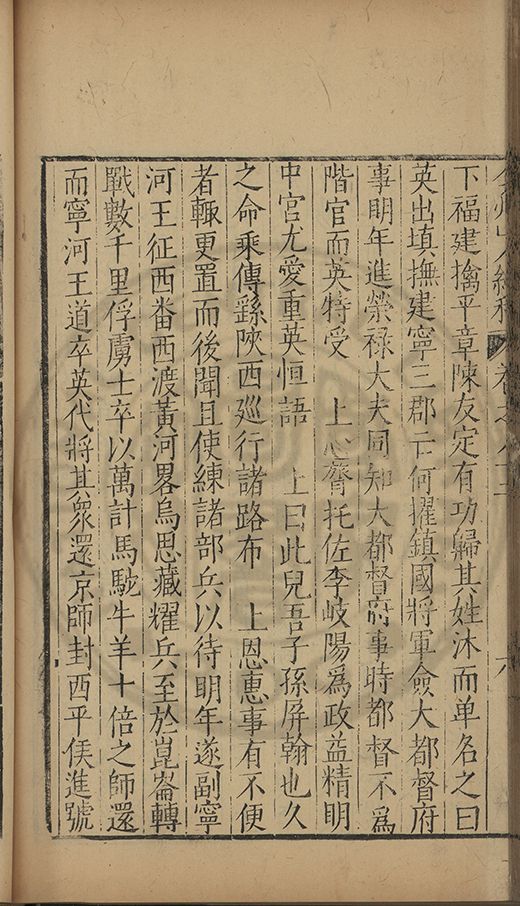 弇州山人續稿 卷之八三 六
下福建擒平章陳友定有功歸其姓沐而单名之曰
英出填撫建寧三郡亡何擢鎮國將軍僉大都督府
事明年進榮禄大夫同知大都督府事時都督不為
階官而英特受 上心膂托佐李岐陽為政益精明
中宮尤愛重英恒語 上曰此兒吾子孫屏翰也久
之命乘傳繇陝西廵行諸路布 上恩惠事有不便
者輒更置而後聞且使練諸部兵以待明年遂副寧
河王征西番西渡黃河畧烏思藏耀兵至於崑崙轉
戰數千里俘虜士卒以萬計馬駝牛羊十倍之師還
而寧河王道卒英代將其衆還京師封西平侯進號